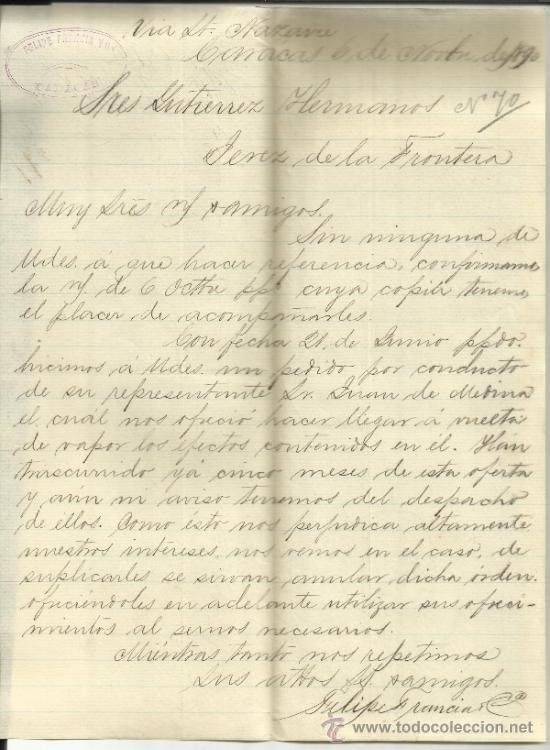 Via St. Nazaire
Caracas 6 de Novbr. de 1890
FELIPE FRANCIA Y Ca
CARACAS
Sres Gutierrez Hermanos Nº 70
Jerez de la Frontera
Muy Sres n/ y amigos.
Sin ninguna de
Udes. á que hacer referencia, confirmamos
la n/. de 6 Octbre ppº cuya copia tenemos
el placer de acompañarles.
Con fecha 21, de Junio ppdo.
hicimos á Udes. un pedido por conducto
de su representante Sr. Juan de Medina
el cuál nos ofreció hacer llegar á vuelta
de vapor los efectos contenidos en él. Han
trascurrido yá cinco meses de esta oferta
y aun ni aviso tenemos del despacho
de ellos. Como ésto nos perjudica altamente
nuestros intereses, nos vemos en el caso, de
suplicarles se sirvan anular dicha órden.
ofreciéndoles en adelante utilizar sus ofreci-
mientos al sernos necesarios.
Miéntras tanto nos repetimos
Sus attos S. S. y amigos.
Felipe Francia & Cª
www.todocoleccion.net